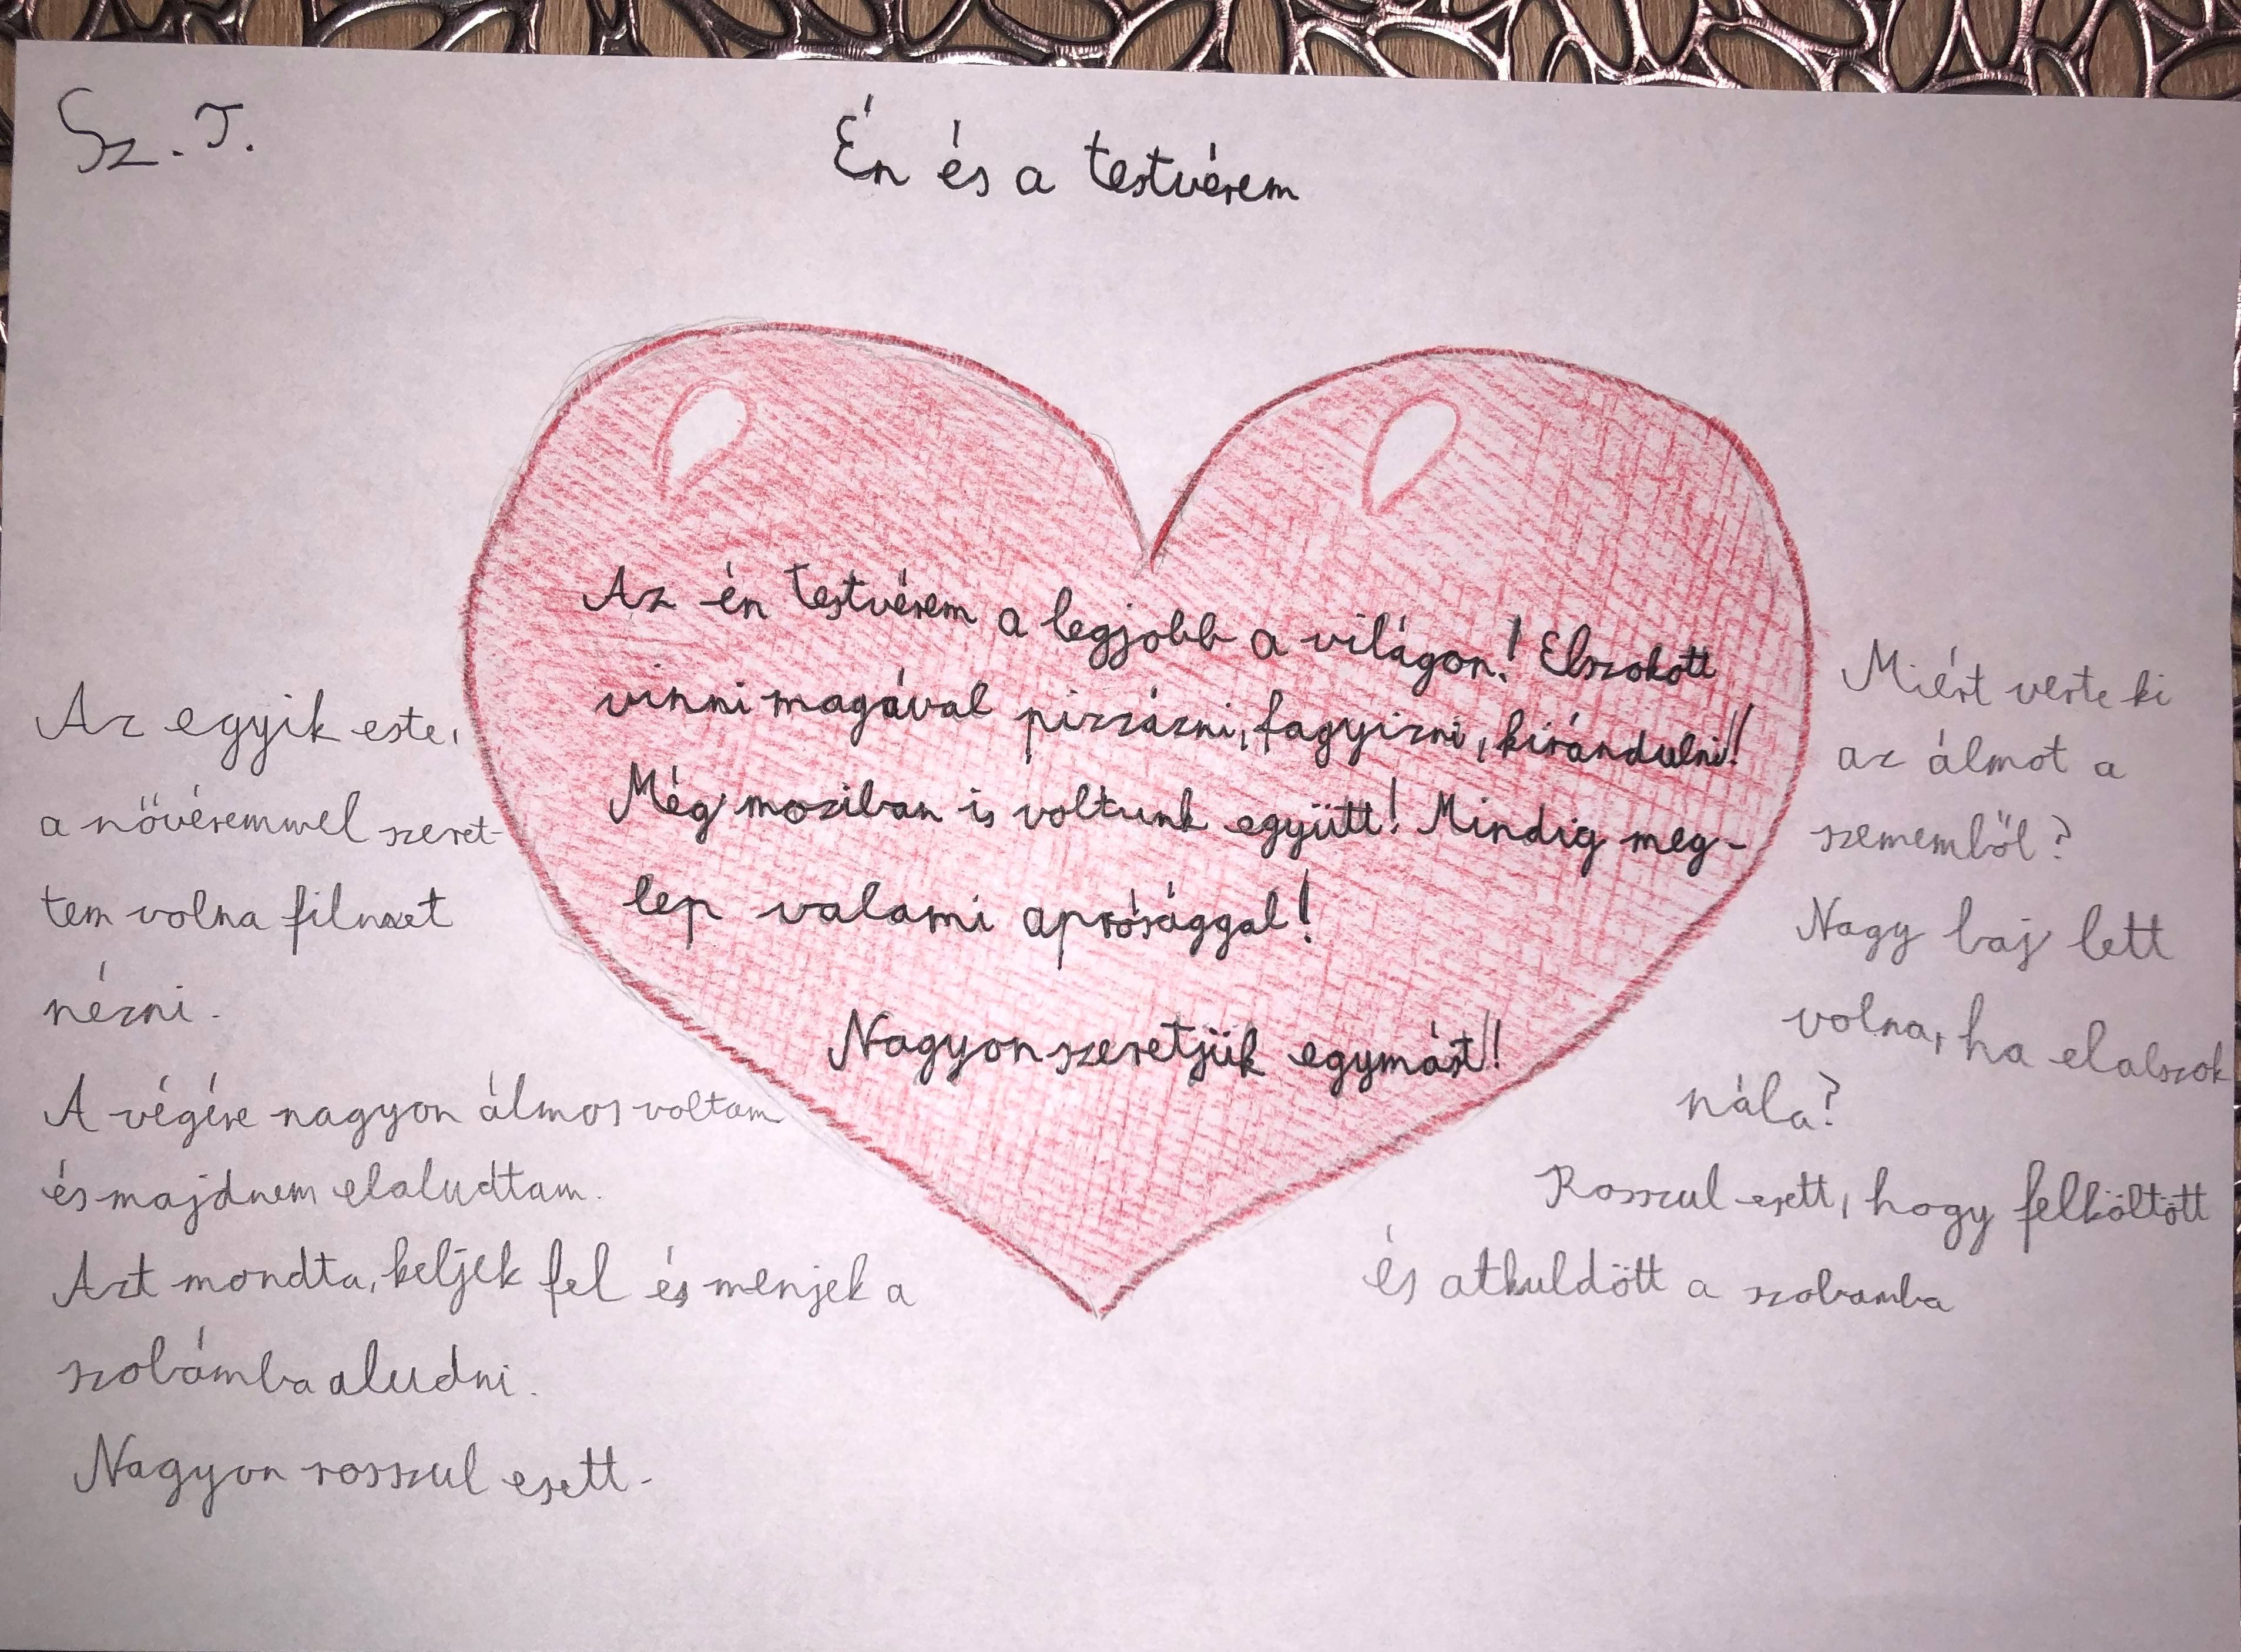 Sz. T.
Én és a testvérem
Az én testvérem a legjobb a világon! Elszokott
vinni magával pizzázni, fagyizni, kirándulni!!
Még moziban is voltunk együtt! Mindig meg-
lep valami aprósággal!
Nagyon szeretjük egymást!!
Az egyik este,
a nővéremmel szeret-
tem volna filmet
nézni.
A végére nagyon álmos voltam
és majdnem elaludtam.
Azt mondta, keljek fel és menjek a
szobámba aludni.
Nagyon rosszul esett.
Miért verte ki
az álmot a
szememből?
Nagy baj lett
volna, ha elalszok
nála?
Rosszul esett, hogy felköltött
és atkuldött a szobamba